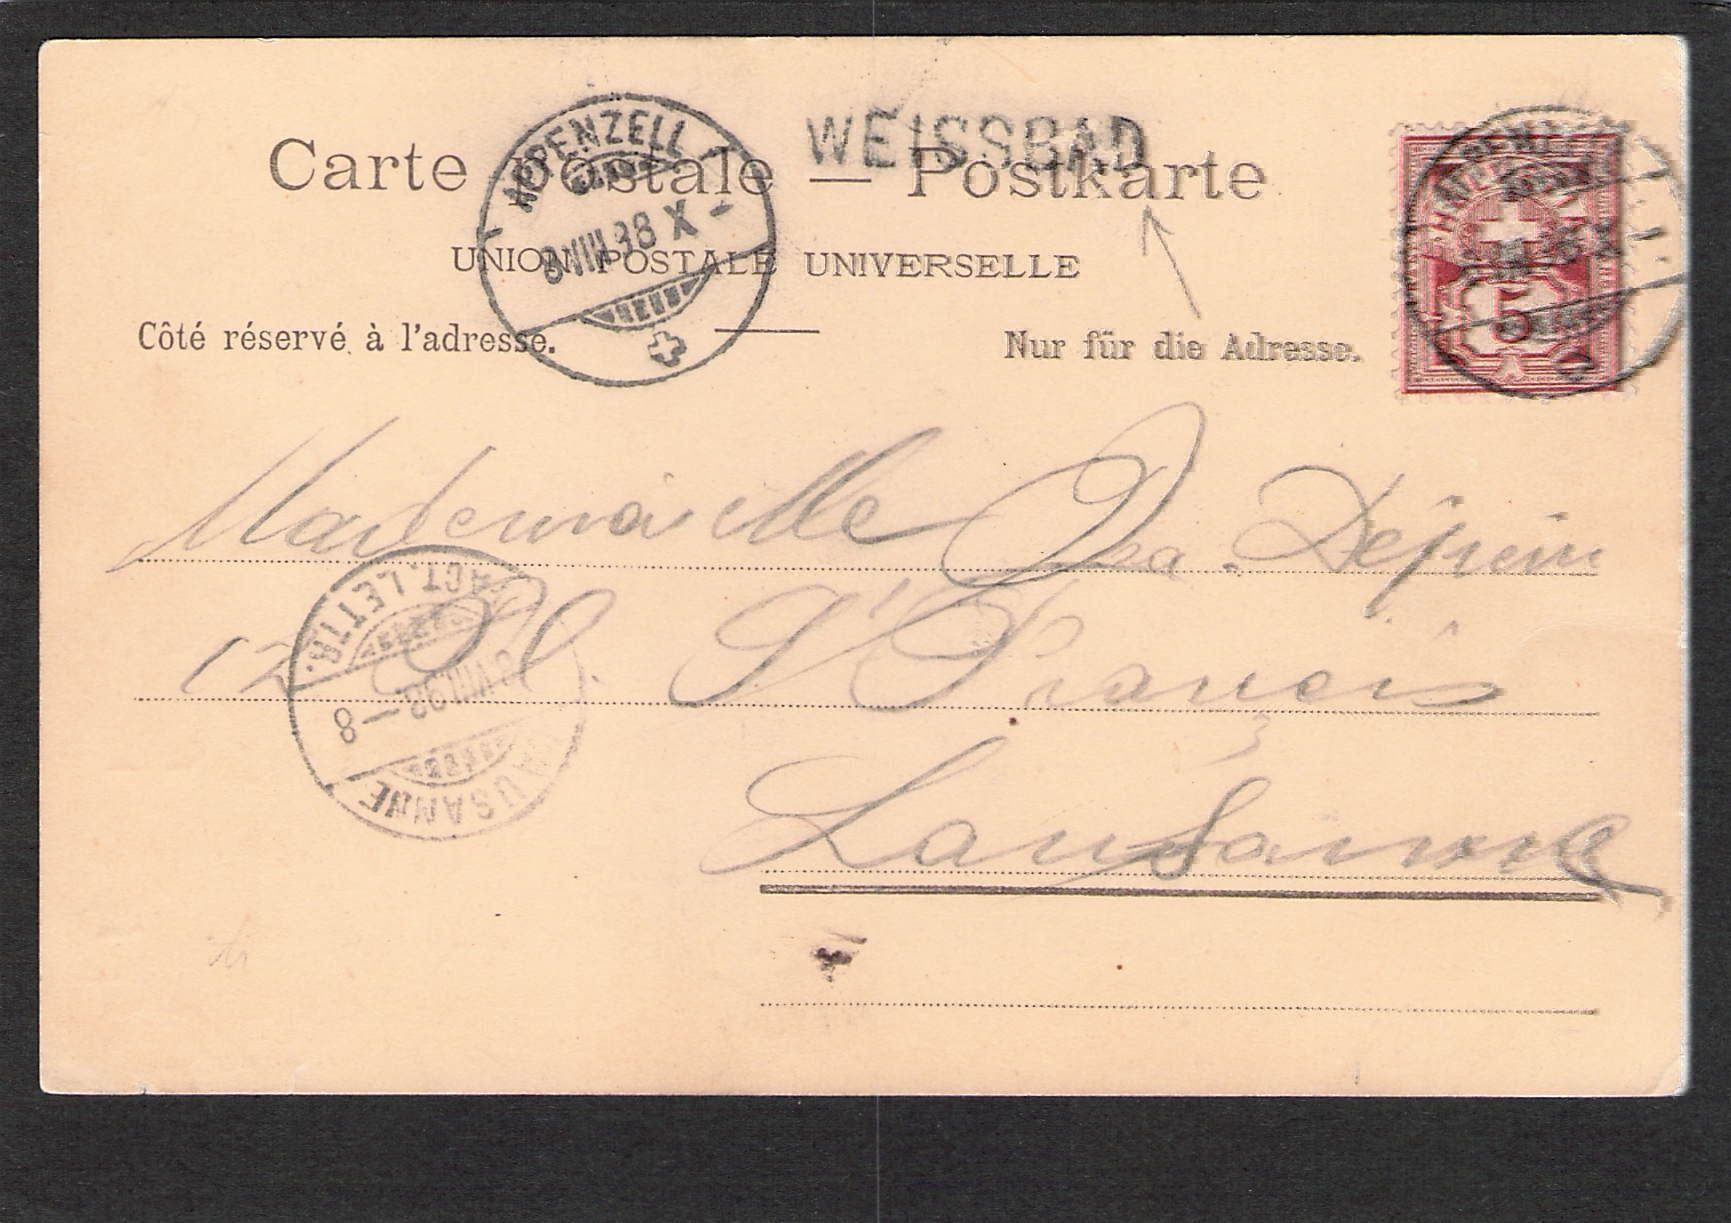 WEISSBAD
Carte postale — Postkarte
UNION POSTALE UNIVERSELLE
Côté réservé à l'adresse. Nur für die Adresse.
APPENZELL
8.VIII.98 X –
APPENZELL
5
Mademoiselle
12 Pl. St François
Lausanne
FACT. LETTR.
VIII.98 – 8
LAUSANNE